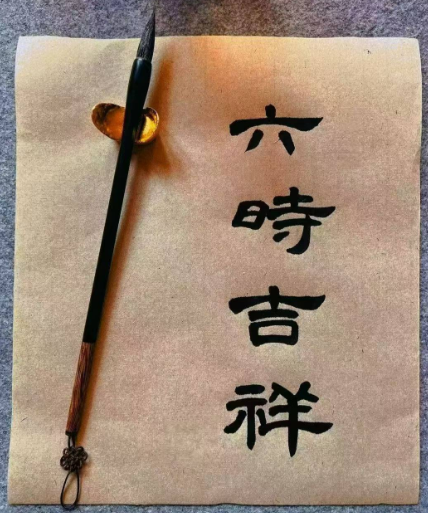 六時吉祥